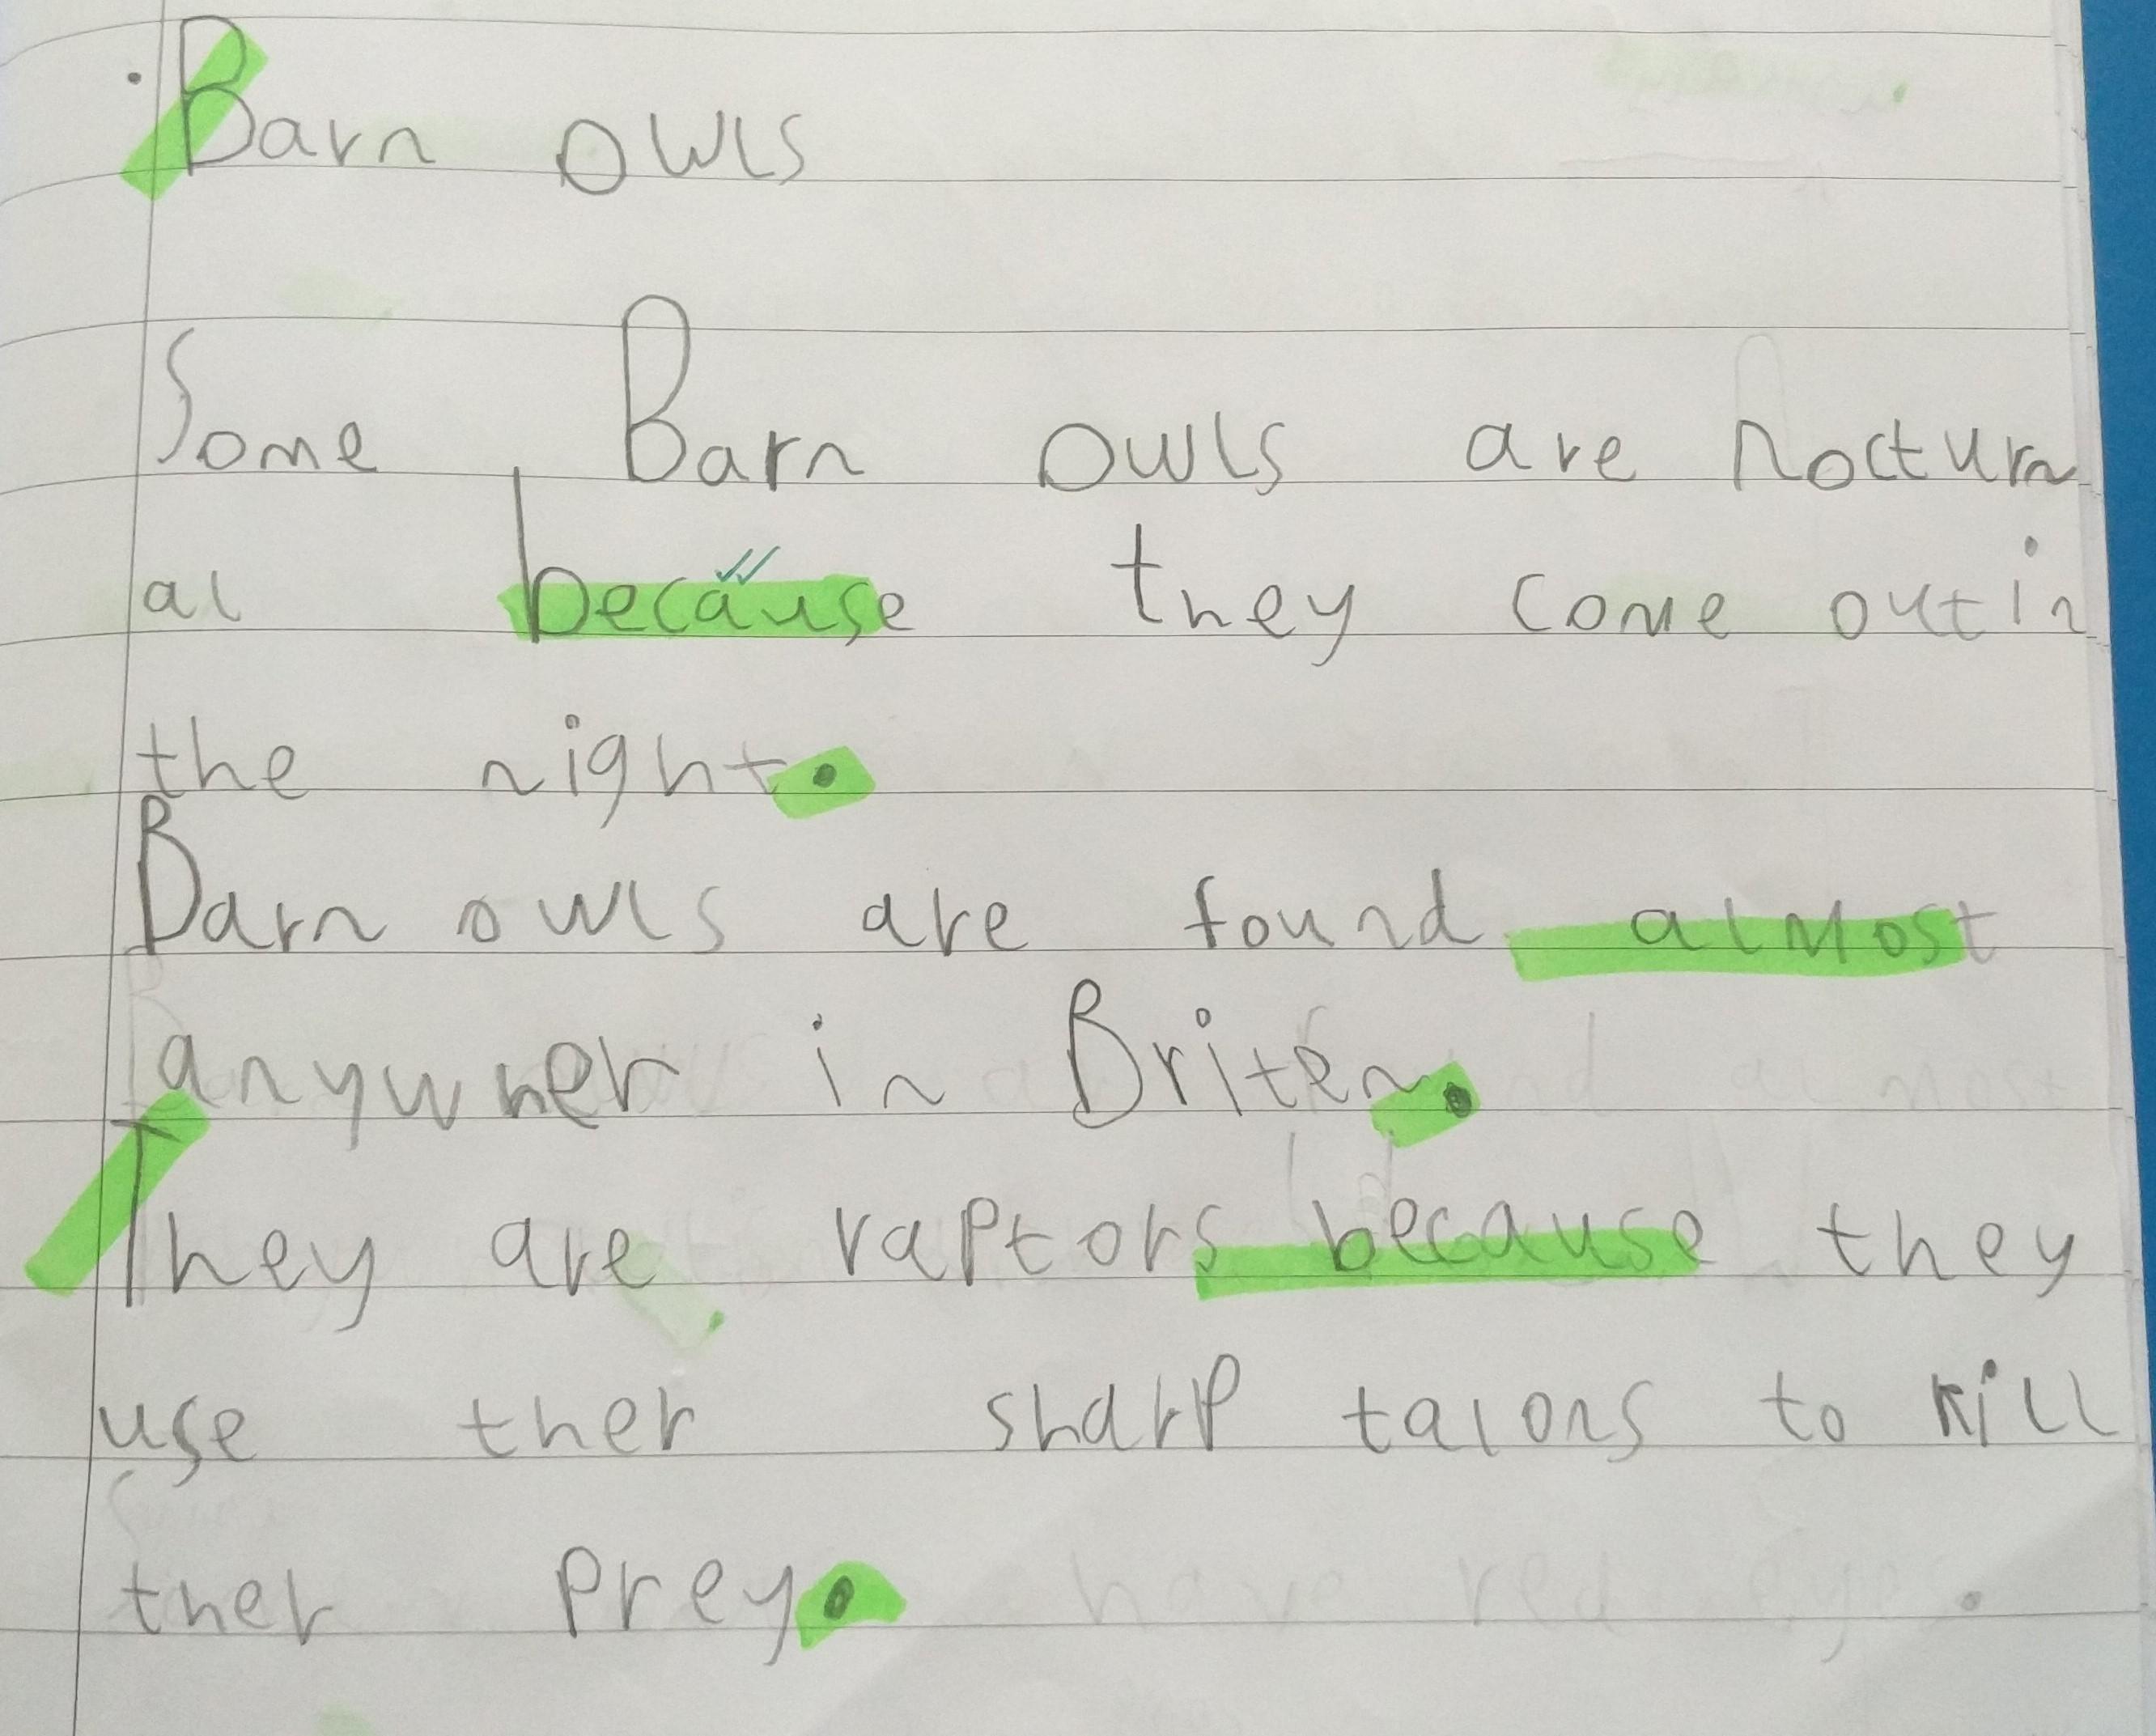 Barn owls
Some Barn owls are nocturn
al because they come out in
the night.
Barn owls are found almost
anywher in Briten.
They are raptors because they
use ther sharp talons to kill
ther prey.